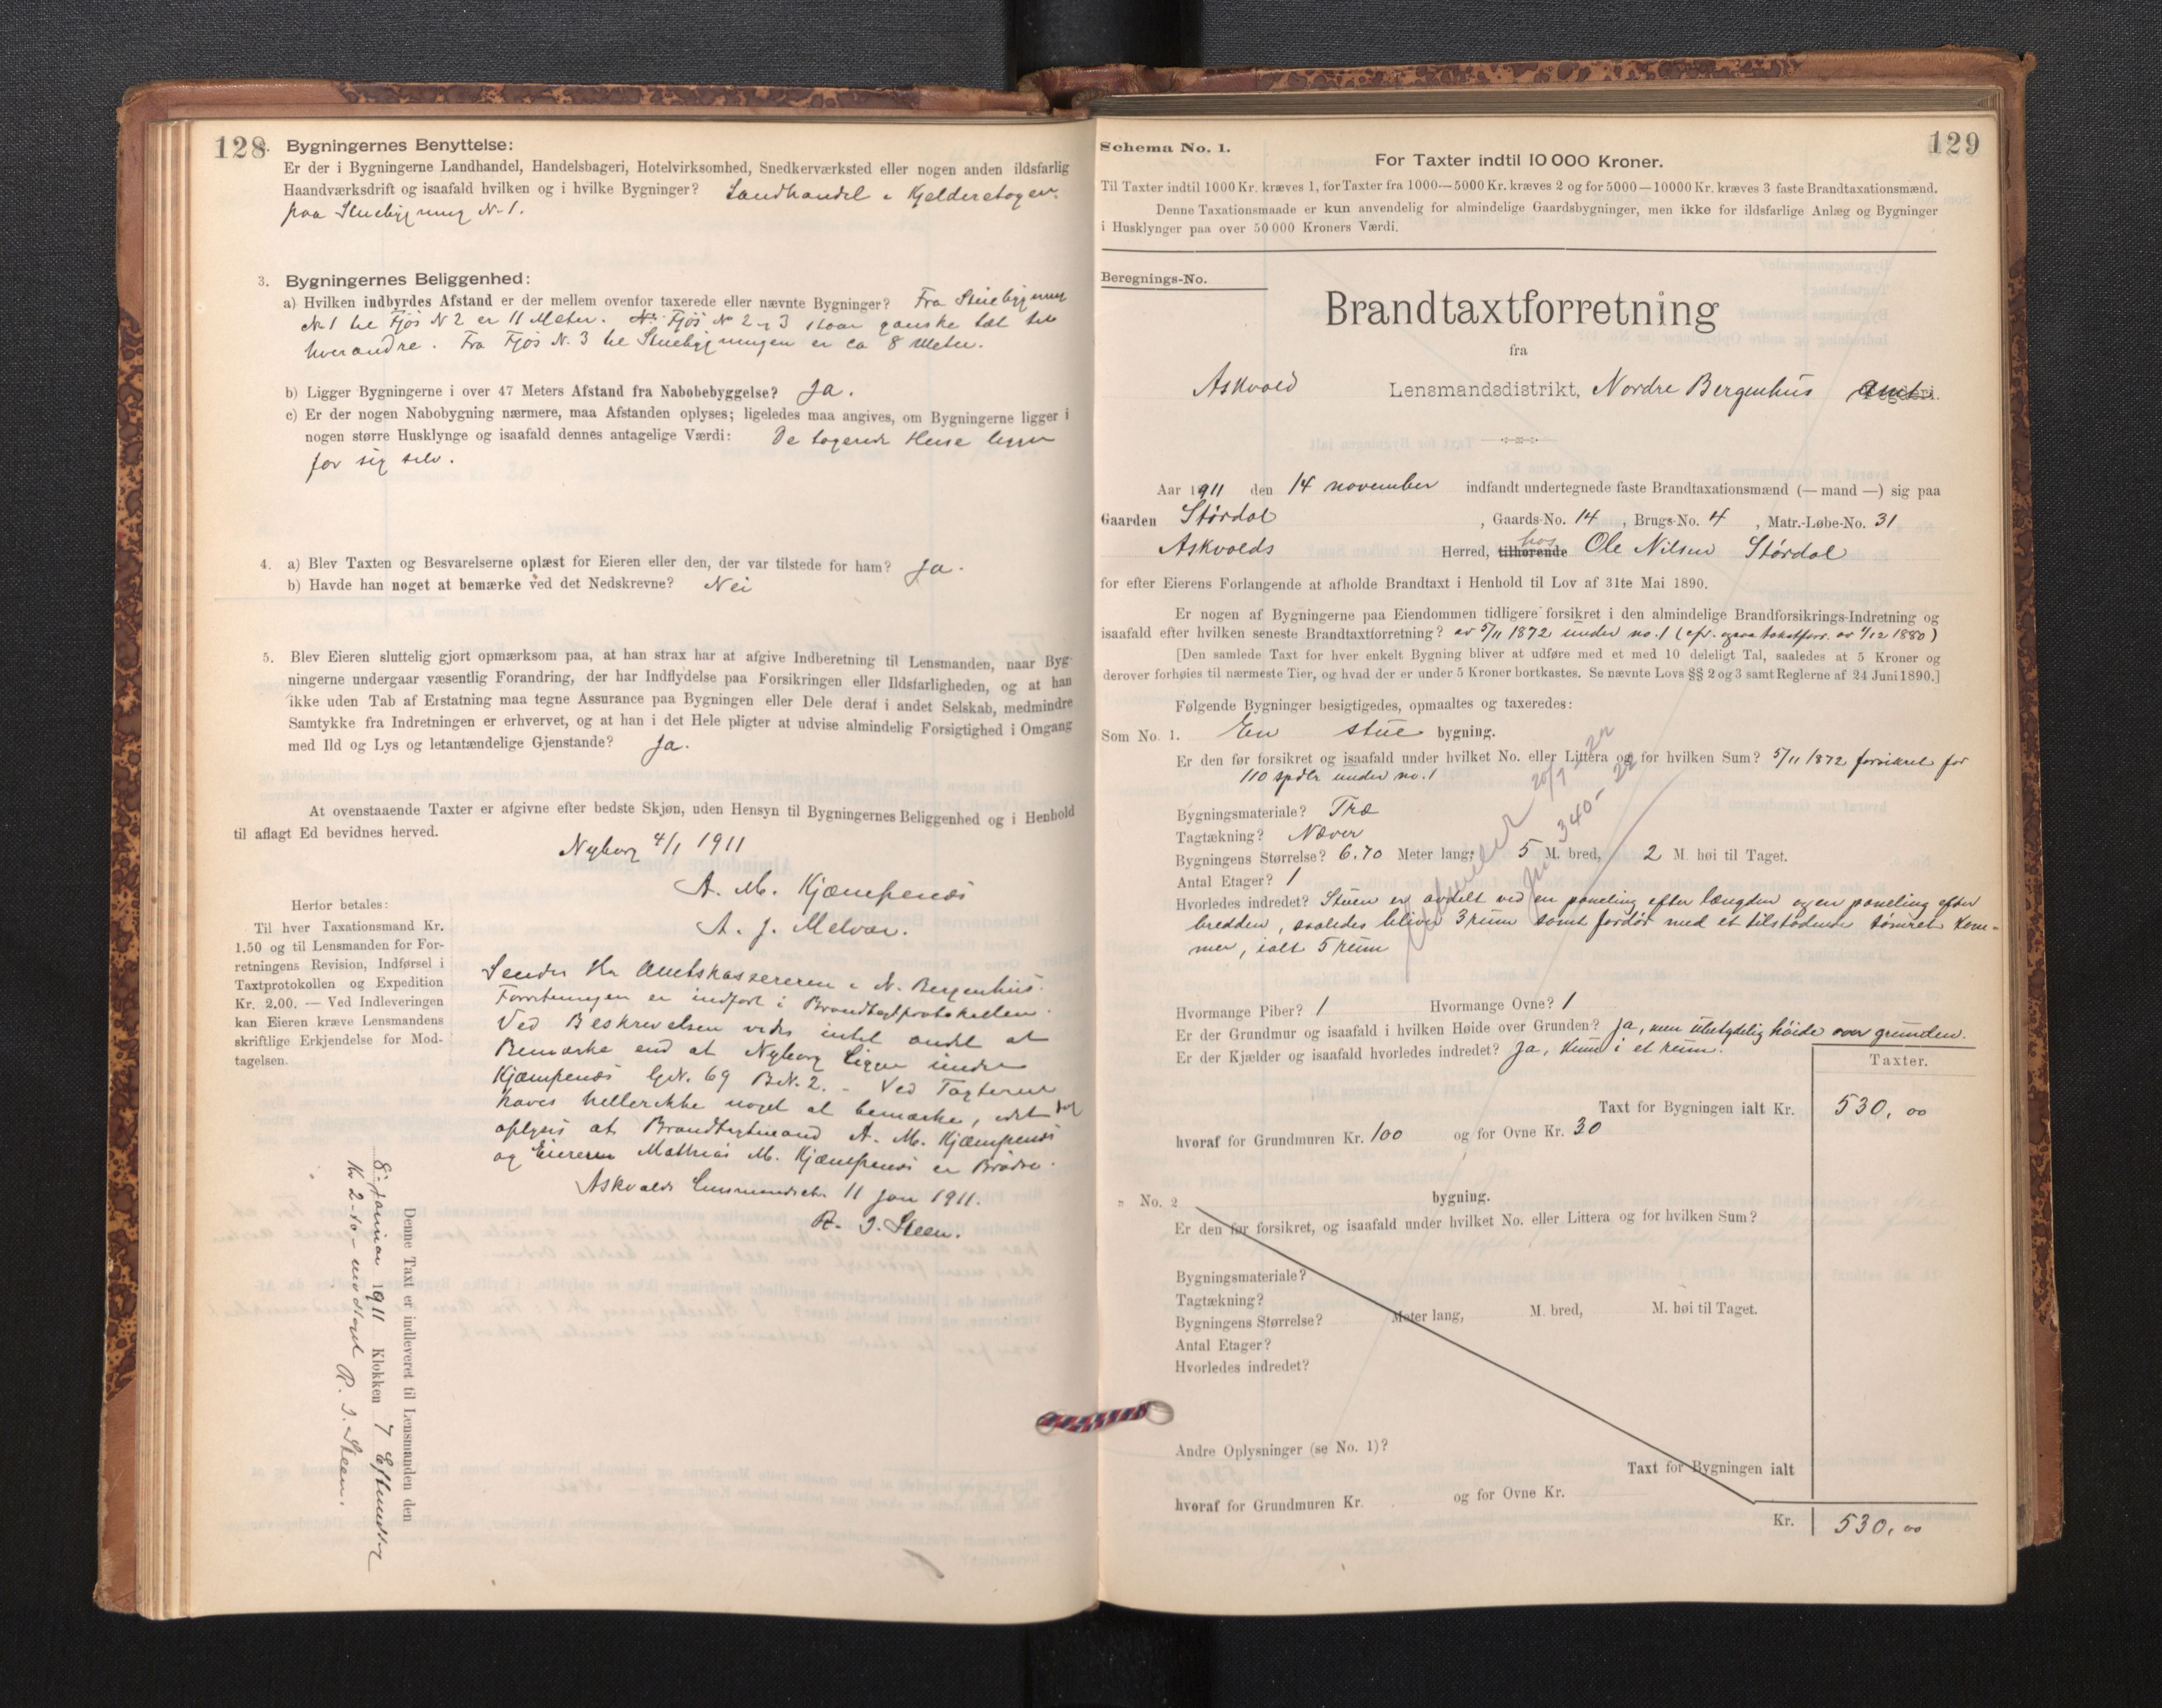 128
Bygningernes Benyttelse:
Er der i Bygningerne Landhandel, Handelsbageri, Hotelvirksomhed, Snedkerværksted eller nogen anden ildsfarlig
Haandværksdrift og isaafald hvilken og i hvilke Bygninger? Landhandel i Kjelderetagen
paa Stuebygning N. 1.
3. Bygningernes Beliggenhed:
a) Hvilken indbyrdes Afstand er der mellem ovenfor taxerede eller nævnte Bygninger? Fra Stuebygning
N 1 til Fjøs N 2 er 11 Meter. Fjøs No 2 og 3 staar ganske tæt til
hverandre. Fra Fjøs N. 3 til Stuebygningen er ca 8 Meter.
b) Ligger Bygningerne i over 47 Meters Afstand fra Nabobebyggelse? Ja.
c) Er der nogen Nabobygning nærmere, maa Afstanden oplyses; ligeledes maa angives, om Bygningerne ligger i
nogen større Husklynge og isaafald dennes antagelige Værdi: De tagerede Huse ligger
for sig selv.
4. a) Blev Taxten og Besvarelserne oplæst for Eieren eller den, der var tilstede for ham? Ja.
b) Havde han noget at bemærke ved det Nedskrevne? Nei
5. Blev Eieren sluttelig gjort opmærksom paa, at han strax har at afgive Indberetning til Lensmanden, naar Byg-
ningerne undergaar væsentlig Forandring, der har Indflydelse paa Forsikringen eller Ildsfarligheden, og at han
ikke uden Tab af Erstatning maa tegne Assurance paa Bygningen eller Dele deraf i andet Selskab, medmindre
Samtykke fra Indretningen er erhvervet, og at han i det Hele pligter at udvise almindelig Forsigtighed i Omgang
med Ild og Lys og letantændelige Gjenstande? Ja.
At ovenstaaende Taxter er afgivne efter bedste Skjøn, uden Hensyn til Bygningernes Beliggenhed og i Henhold
til aflagt Ed bevidnes herved.
Nyborg 4/1 1911
A. M. Kjæmpenes
A. J. Melvær.
Herfor betales:
Til hver Taxationsmand Kr.
1.50 og til Lensmanden for For-
retningens Revision, Indførsel i
Taxtprotokollen og Expedition
Kr. 2.00. — Ved Indleveringen
kan Eieren kræve Lensmandens
skriftlige Erkjendelse for Mod-
tagelsen.
Sendes Hr Amtskassereren i N. Bergenhus.
Forretningen er indført i Brandtagtprotokollen.
Ved Beskrivelsen vides intet andet at
Bemærke end at Nyborg ligger under
Kjæmpenes G.N. 69 B.N. 2. - Ved Taxterne
haves hellerikke noget at bemærke, idet dog
oplyses at Brandtagtmand A. M. Kjæmpenes
og Eieren Mathias M. Kjæmpenes er Brødre.
Askvolds Lensmandsk. 11 Jan 1911.
R. J. Steen.
Denne Taxt er indleveret til Lensmanden den
8 januar 1911 Klokken 7 Eftmdag
Kr 2-10- modtaget R. J. Steen.
129
Schema No. 1.
For Taxter indtil 10 000 Kroner.
Til Taxter indtil 1000 Kr. kræves 1, for Taxter fra 1000—5000 Kr. kræves 2 og for 5000—10000 Kr. kræves 3 faste Brandtaxationsmænd.
Denne Taxationsmaade er kun anvendelig for almindelige Gaardsbygninger, men ikke for ildsfarlige Anlæg og Bygninger
i Husklynger paa over 50 000 Kroners Værdi.
Beregnings-No.
Brandtaxtforretning
fra
Askvold Lensmandsdistrikt, Nordre Bergenhus amt Fogderi.
Aar 1911 den 14 november indfandt undertegnede faste Brandtaxationsmænd (— mand —) sig paa
Gaarden Stórdal , Gaards-No. 14 , Brugs-No. 4 , Matr.-Løbe-No. 31
Askvolds Herred, tilhørende hos Ole Nilsen Stórdal
for efter Eierens Forlangende at afholde Brandtaxt i Henhold til Lov af 31te Mai 1890.
Er nogen af Bygningerne paa Eiendommen tidligere forsikret i den almindelige Brandforsikrings-Indretning og
isaafald efter hvilken seneste Brandtaxtforretning? av 5/11 1872 under no. 1 (cfr. ogsaa takstforr. av 1/12 1880)
[Den samlede Taxt for hver enkelt Bygning bliver at udføre med et med 10 deleligt Tal, saaledes at 5 Kroner og
derover forhøies til nærmeste Tier, og hvad der er under 5 Kroner bortkastes. Se nævnte Lovs §§ 2 og 3 samt Reglerne af 24 Juni 1890.]
Følgende Bygninger besigtigedes, opmaaltes og taxeredes:
Som No. 1. En stue bygning.
Er den før forsikret og isaafald under hvilket No. eller Littera og for hvilken Sum? 5/11 1872 forsikret for
110 spdlr under no. 1
Bygningsmateriale? Træ
Tagtækning? Næver
Bygningens Størrelse? 6.70 Meter lang; 5 M. bred, 2 M. høi til Taget.
Antal Etager? 1
Hvorledes indredet? Stuen er avdelt ved en paneling efter længden og en paneling efter
bredden, saaledes bliver 3 rum samt fordør med et tilstødende tømret kam-
mer, ialt 5 rum
Hvormange Piber? 1 Hvormange Ovne? 1
Er der Grundmur og isaafald i hvilken Høide over Grunden? Ja, men ubetydelig høide over grunden.
Er der Kjælder og isaafald hvorledes indredet? Ja, kun i et rum.
Taxter.
Taxt for Bygningen ialt Kr. 530,00
hvoraf for Grundmuren Kr. 100 og for Ovne Kr. 30
" No. 2 bygning.
Er den før forsikret, og isaafald under hvilket No. eller Littera og for hvilken Sum?
Bygningsmateriale?
Tagtækning?
Bygningens Størrelse? Meter lang, M. bred, M. høi til Taget.
Antal Etager?
Hvorledes indredet?
Andre Oplysninger (se No. 1)?
Taxt for Bygningen ialt
hvoraf for Grundmuren Kr. og for Ovne Kr.
Kr. 530,00